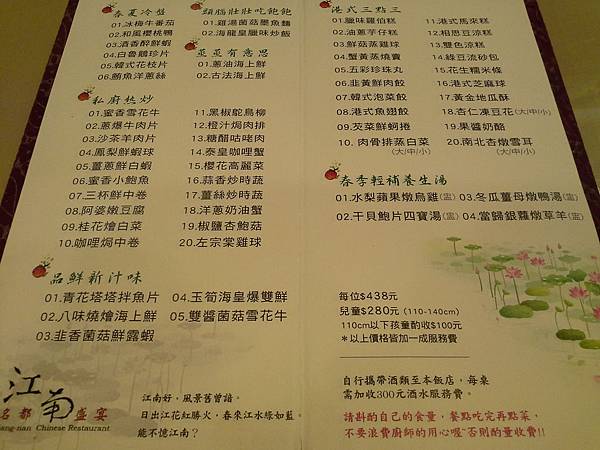 春夏冷盤
01.冰梅牛番茄
02.和風櫻桃鴨
03.酒香醉鮮蝦
04.白魯鵝珍片
05.韓式花枝片
06.鮪魚洋蔥絲
私廚热炒
01.蜜香雪花牛
02.蔥爆牛肉片
03.沙茶羊肉片
04.鳳梨鮮蝦球
05.薑蔥鮮白蝦
06.蜜香小鮑魚
07.三杯鮮中卷
08.阿婆嫩豆腐
09.桂花燴白菜
10.咖哩焗中卷
品鮮新汁味
01.青花塔塔拌魚片
02.八味燒燴海上鮮
03.韭香菌菇鮮露蝦
頭腦壯壯吃飽飽
01.雞湯菌菇墨魚麵
02.海龍皇臘味炒飯
芷芷有意思
01.蔥油海上鮮
02.古法海上鮮
11.黑椒鴕鳥柳
12.橙汁焗肉排
13.糖醋咕老肉
14.泰皇咖哩蟹
15.櫻花高麗菜
16.蒜香炒時蔬
17.薑絲炒時蔬
18.洋蔥奶油蟹
19.椒鹽杏鮑菇
20.左宗棠雞球
04.玉筍海皇爆雙鮮
05.雙醬菌菇雪花牛
江南
名都盛宴
ang-nan Chinese Restaurant
江南好，風景舊曾諳。
日出江花紅勝火，春來江水綠如藍。
能不憶江南？
港式三點三
01.臘味蘿伯糕
02.油蔥芋仔糕
03.鮮菇蒸雞球
04.蟹黃蒸燒賣
05.五彩珍珠丸
06.韭黃鮮肉餃
07.韓式泡菜餃
08.港式魚翅餃
09.芡菜鮮蚵捲
10.肉骨排蒸白菜
(大/中/小)
11.港式馬來糕
12.相思豆涼糕
13.雙色涼糕
14.綠豆流砂包
15.花生糯米條
16.港式芝麻球
17.黃金地瓜酥
18.杏仁凍豆花(大/中/小)
19.果醬奶酪
20.南北杏燉雪耳
(大/中/小)
春季輕補養生湯
01.水梨蘋果燉烏雞(盅)
02.干貝鮑片四寶湯(盅)
03.冬瓜薑母燉鴨湯(盅)
04.當歸銀蘿燉草羊(盅)
每位$438元
兒童$280元 (110-140cm)
110cm以下孩童酌收$100元
＊以上價格皆加一成服務費
自行攜帶酒類至本飯店，每桌
需加收300元酒水服務費。
請斟酌自己的食量，餐點吃完再點菜，
不要浪費廚師的用心喔~否則酌量收費!!